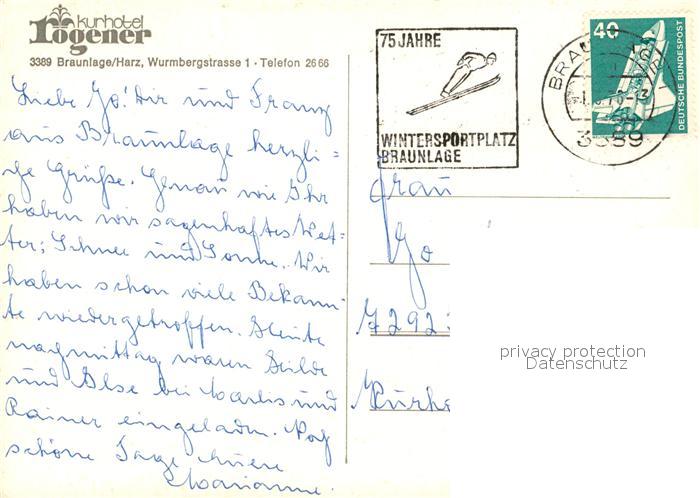 kurhotel
rögener
3389 Braunlage/Harz, Wurmbergstrasse 1 · Telefon 2666
Liebe Yo! Dir und Franz
aus Braunlage herzli=
che Grüße. Genau wie Ihr
haben wir sagenhaftes Wet=
ter; Schnee und Sonne. Wir
haben schon viele Bekann-
te wiedergetroffen. Heute
nachmittag waren Hilde
und Ilse bei und
Rainer eingeladen. Noch
schöne Tage Eure
Marianne.
75 JAHRE
WINTERSPORTPLATZ
BRAUNLAGE
40
DEUTSCHE BUNDESPOST
3389
Frau
Yo
7292
privacy protection
Datenschutz